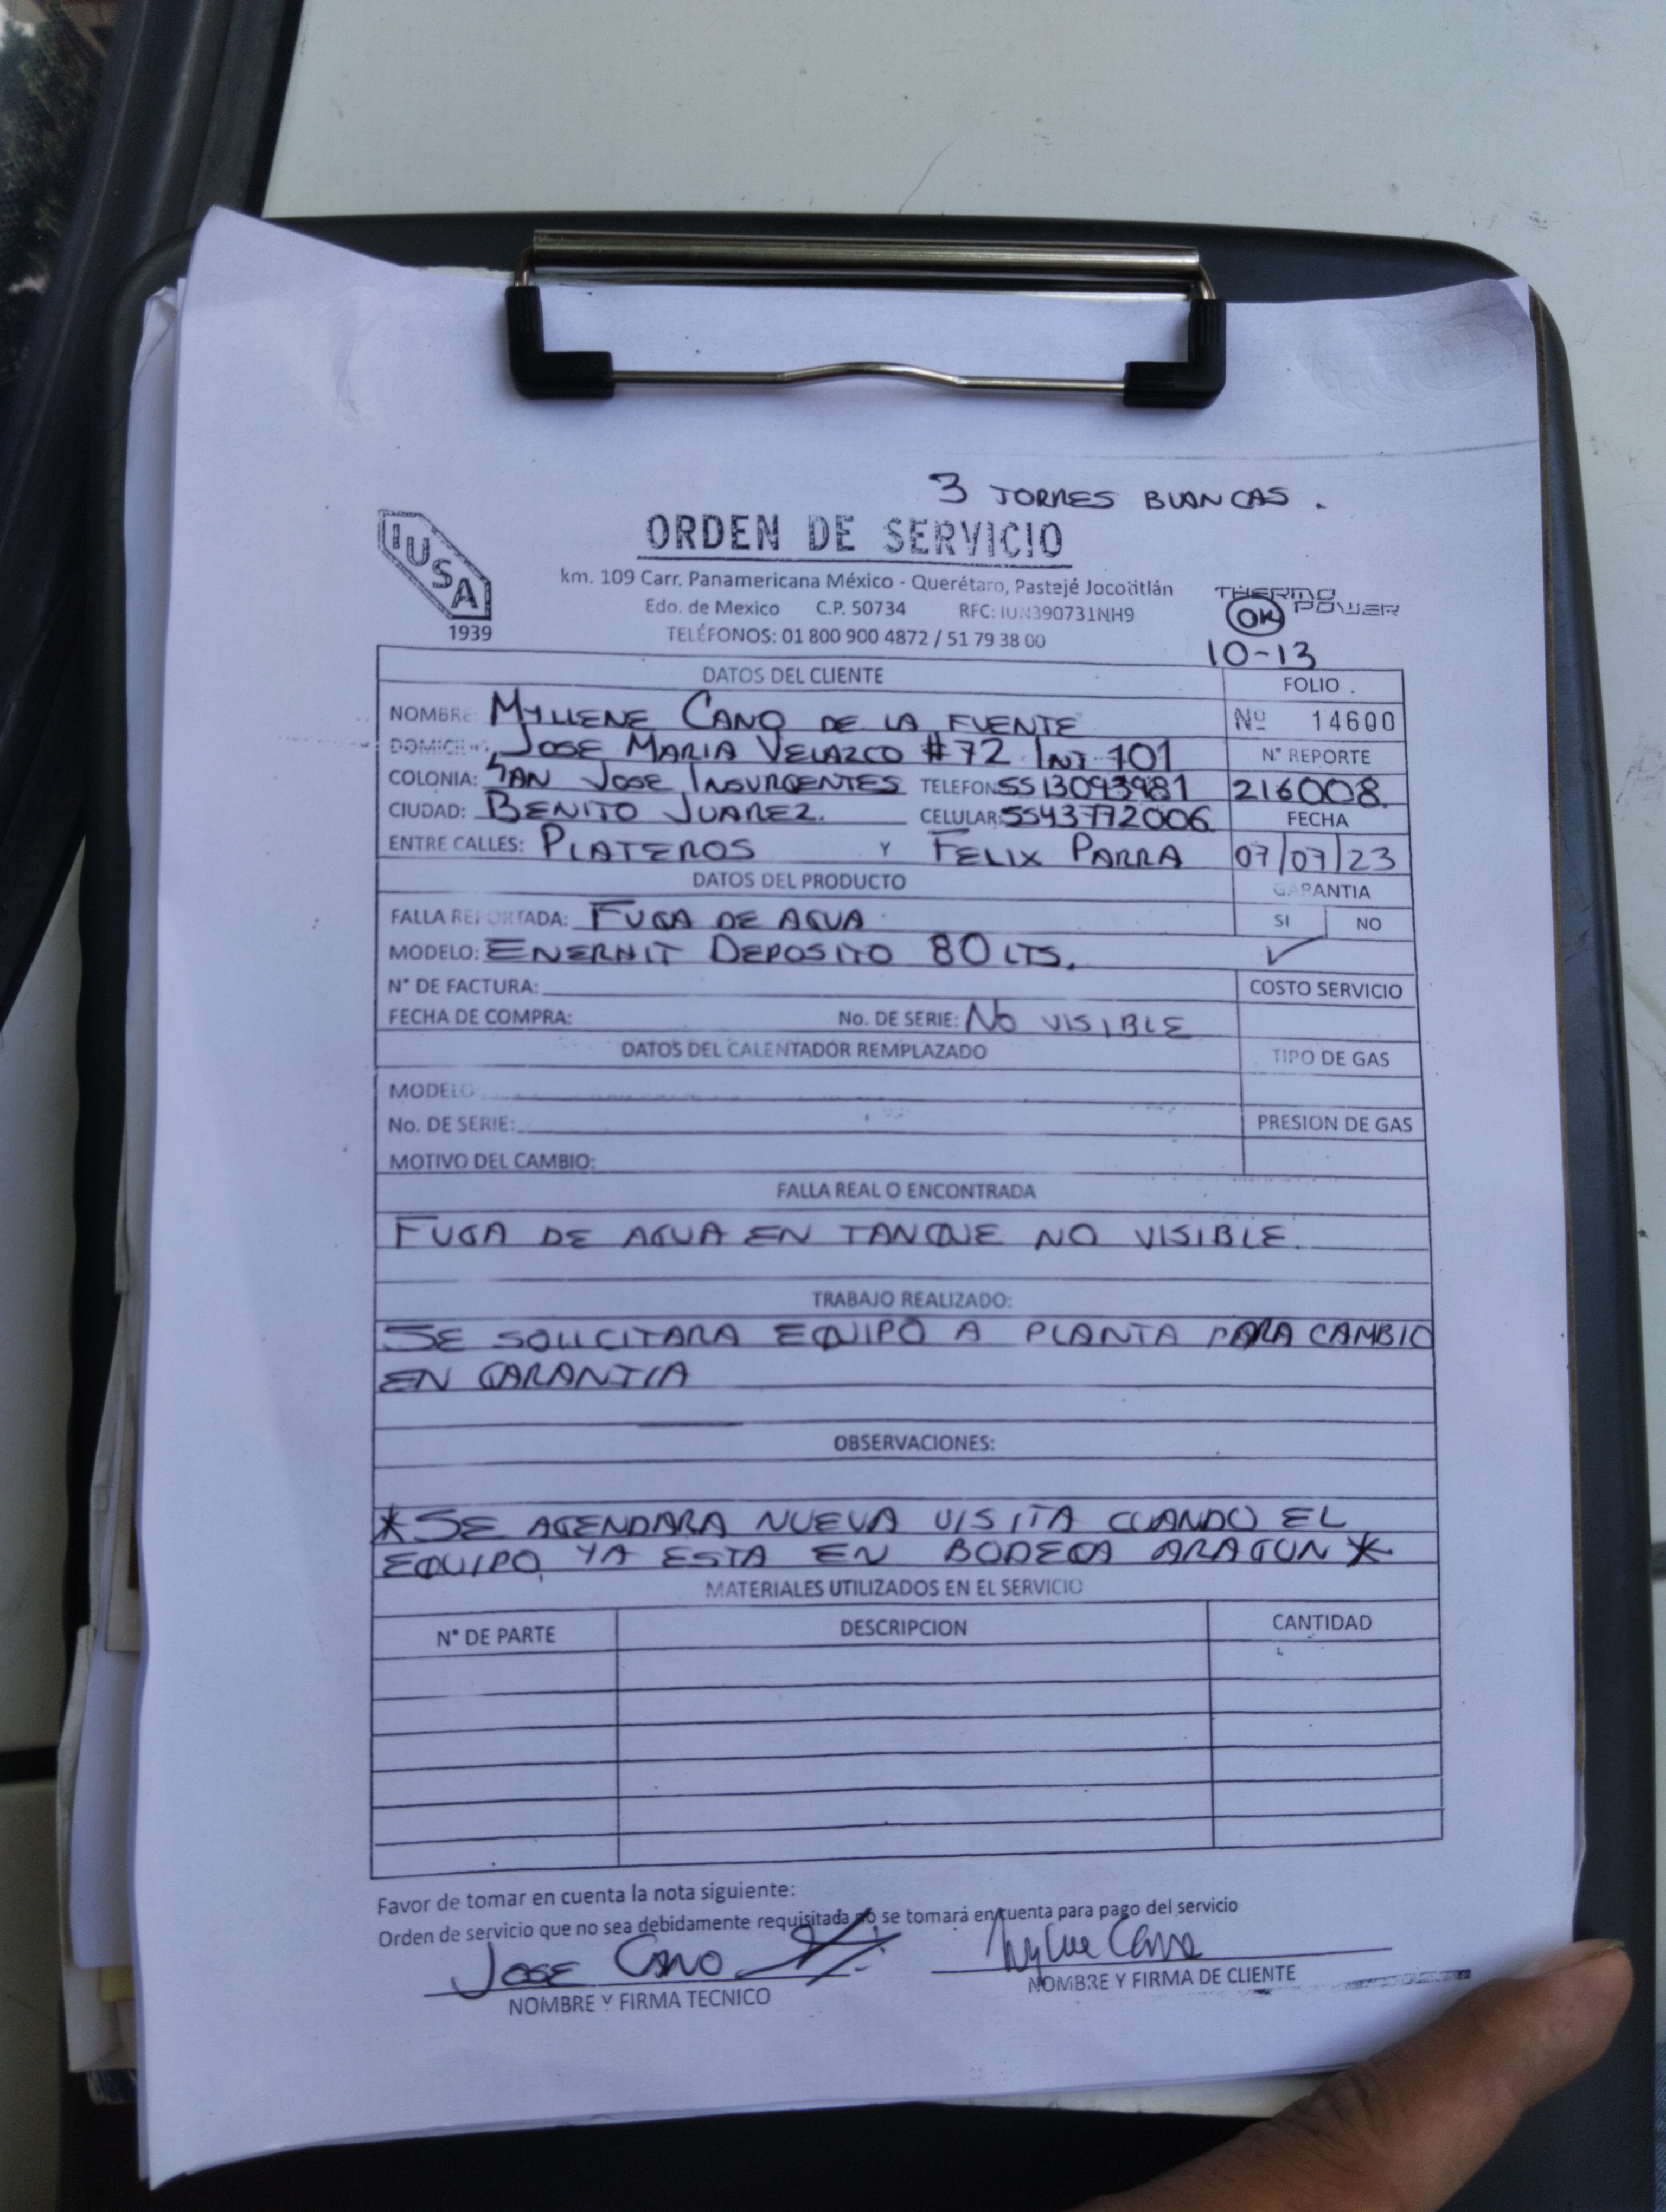 3 TORRES BLANCAS.
ORDEN DE SERVICIO
IUSA
1939
km. 109 Carr. Panamericana México - Querétaro, Pastejé Jocotitlán
Edo. de Mexico C.P. 50734 RFC: IUN390731NH9
TELÉFONOS: 01 800 900 4872 / 51 79 38 00
THERMO POWER
OK
10-13
DATOS DEL CLIENTE
FOLIO
NOMBRE: MYLLENE CANO DE LA FUENTE
Nº 14600
DOMICILIO: JOSE MARIA VELAZCO #72 INT 101
N° REPORTE
COLONIA: SAN JOSE INSURGENTES TELEFON: 5513093981
216008.
CIUDAD: BENITO JUAREZ. CELULAR: 5543772006
FECHA
ENTRE CALLES: PLATEROS Y FELIX PARRA
07/07/23
DATOS DEL PRODUCTO
GARANTIA
FALLA REPORTADA: FUGA DE AGUA
SI NO
MODELO: ENERHIT DEPOSITO 80 LTS.
✓
N° DE FACTURA:
COSTO SERVICIO
FECHA DE COMPRA: No. DE SERIE: NO VISIBLE
DATOS DEL CALENTADOR REMPLAZADO
TIPO DE GAS
MODELO
No. DE SERIE:
PRESION DE GAS
MOTIVO DEL CAMBIO:
FALLA REAL O ENCONTRADA
FUGA DE AGUA EN TANQUE NO VISIBLE.
TRABAJO REALIZADO:
SE SOLICITARA EQUIPO A PLANTA PARA CAMBIO
EN GARANTIA
OBSERVACIONES:
*SE AGENDARA NUEVA VISITA CUANDO EL
EQUIPO YA ESTA EN BODEGA ARAGON*
MATERIALES UTILIZADOS EN EL SERVICIO
N° DE PARTE DESCRIPCION CANTIDAD
Favor de tomar en cuenta la nota siguiente:
Orden de servicio que no sea debidamente requisitada no se tomará en cuenta para pago del servicio
JOSE CANO
NOMBRE Y FIRMA TECNICO
NOMBRE Y FIRMA DE CLIENTE